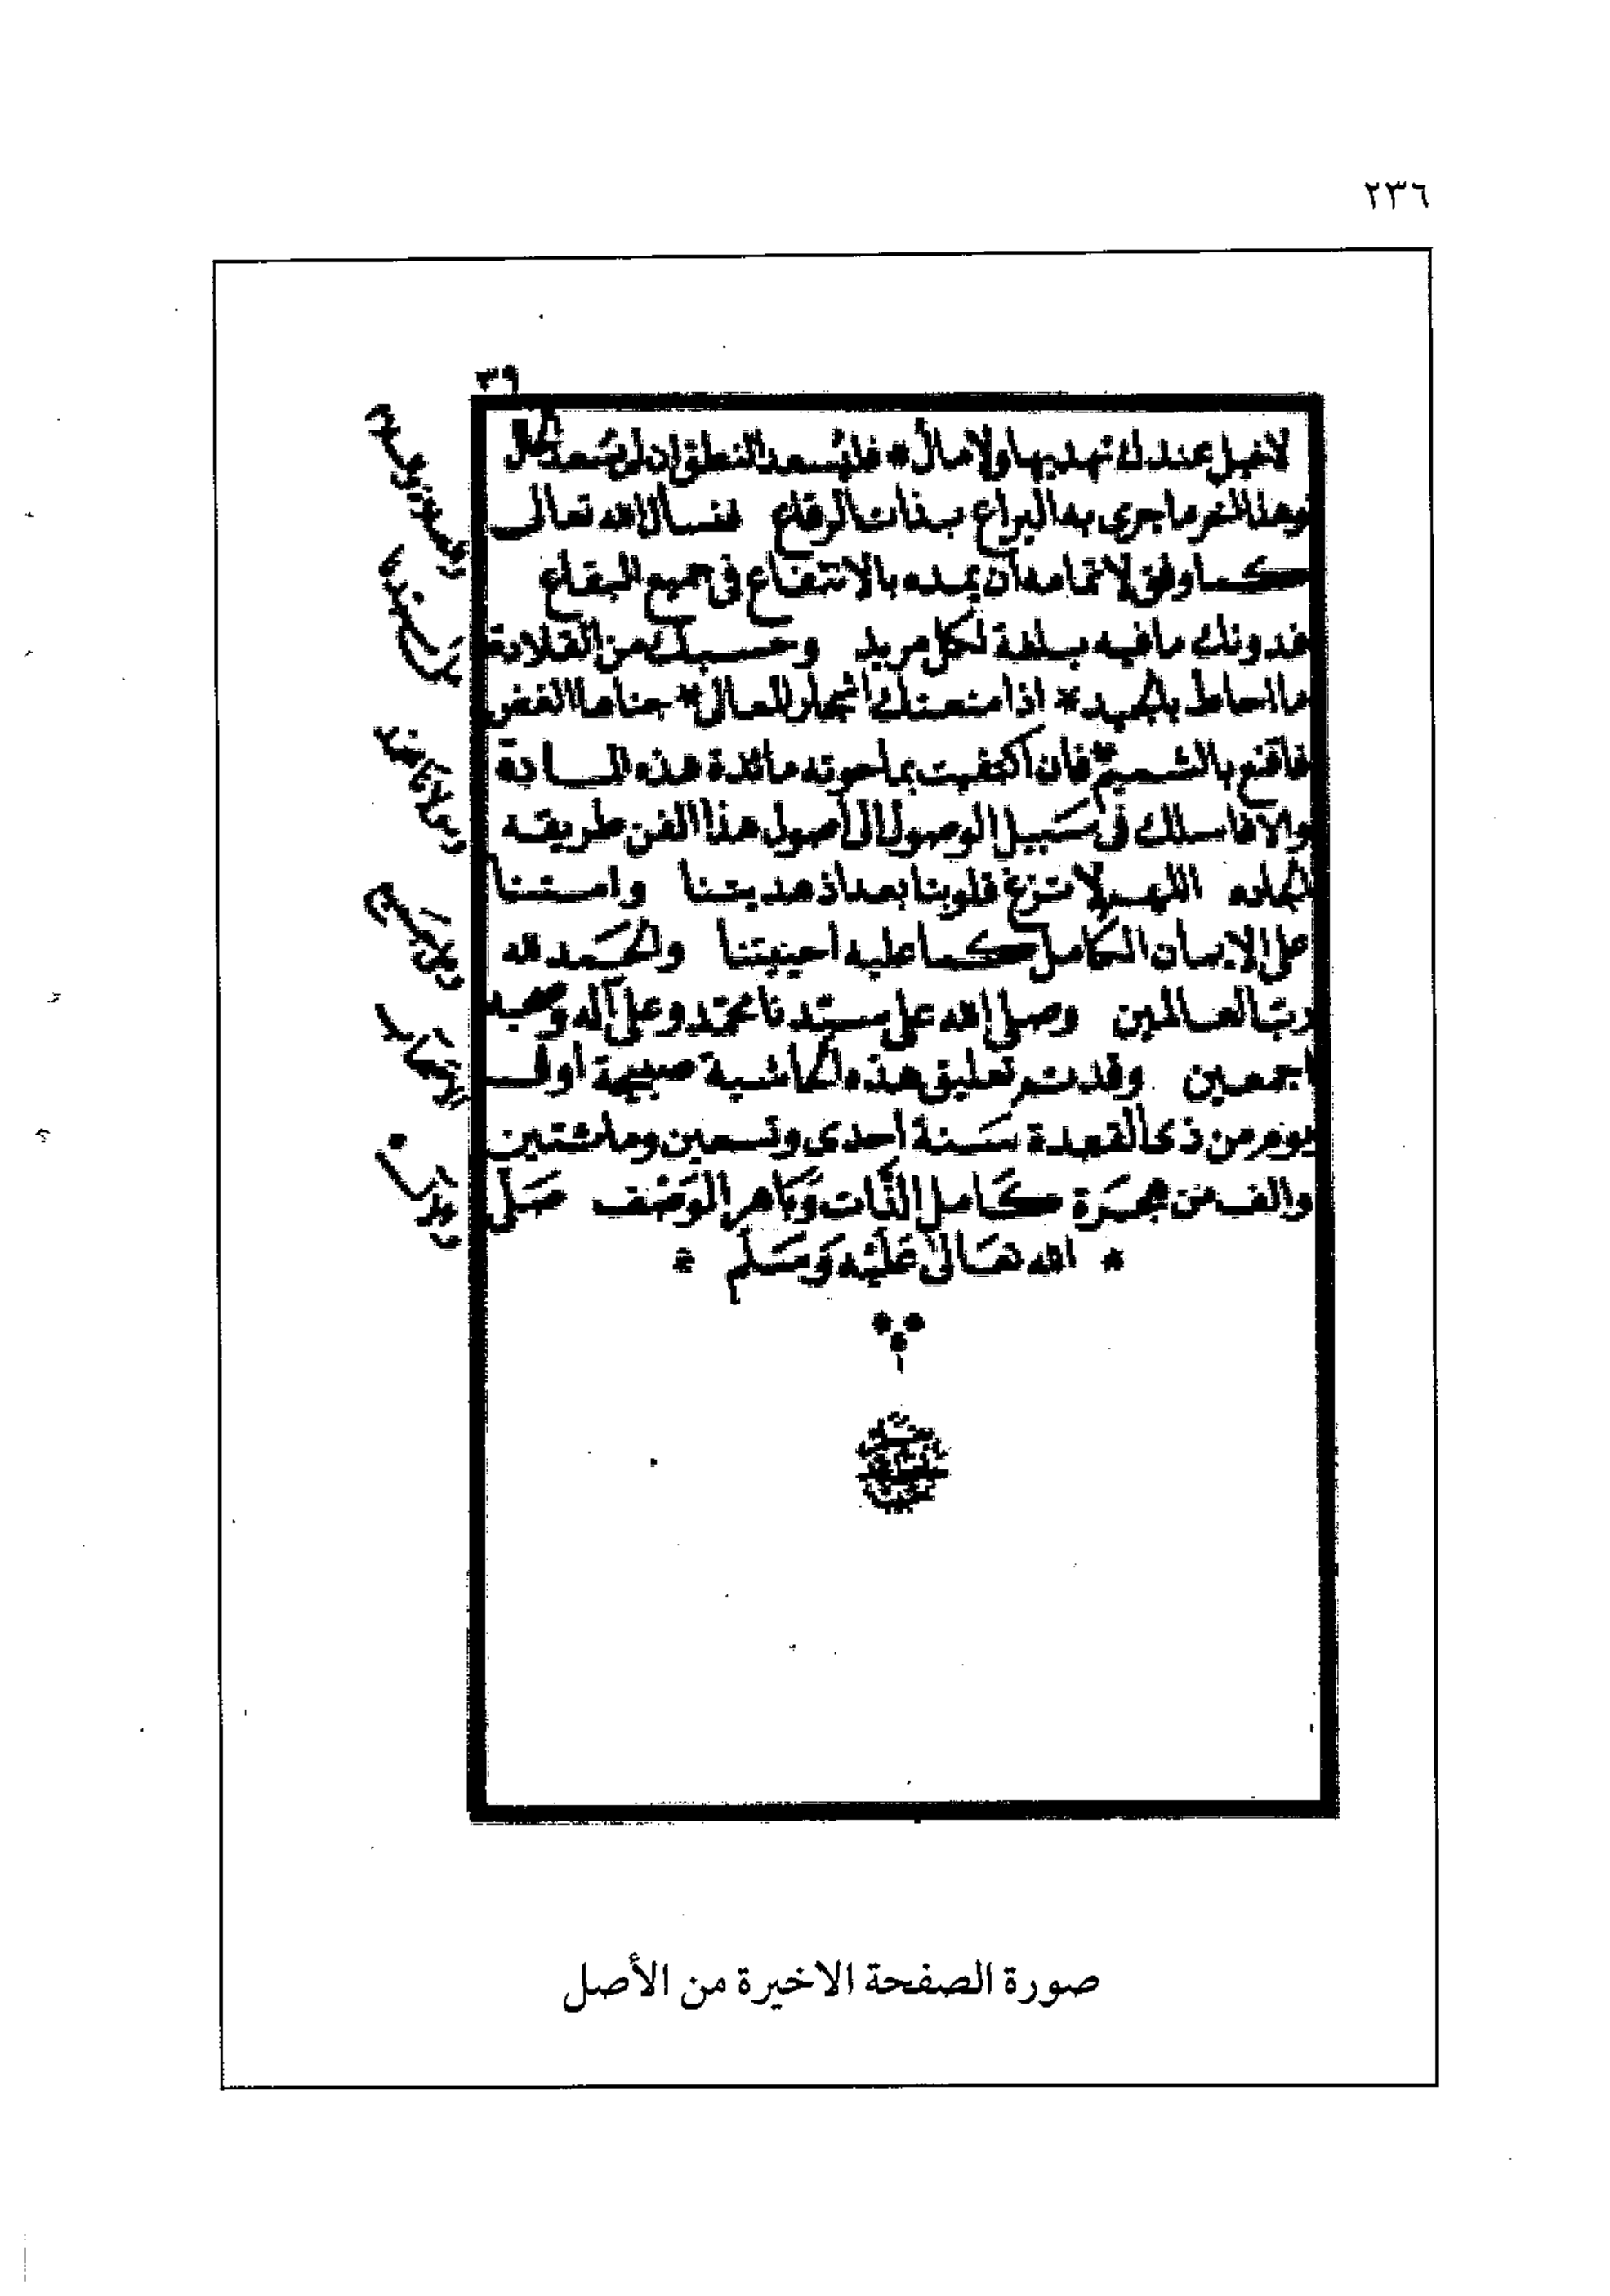 ٢٣٦
٣٩
لا خيل عندك تهديها ولا مال * فليسعد النطق ان لم يسعد الحال
وهذا آخر ما جرى به اليراع بذات الرقاع فنسأل الله تعالى
كما وفق لاتمامه أن يمده بالانتفاع في جميع البقاع
فدونك ما فيه بلغة لكل مريد وحسبك من القلادة
ما احاط بالجيد * اذا منعتك اشجار المعالي * جناها الغض
فاقنع بالشميم * فان اكتفيت بما حوته مائدة هذه المادة
والا فاسلك في سبيل الوصول الى أصول هذا الفن طريقه
الجاده اللهم لا تزغ قلوبنا بعد اذ هديتنا وامتنا
على الايمان الكامل كما عليه احييتنا والحمد لله
رب العالمين وصلى الله على سيدنا محمد وعلى آله وصحبه
اجمعين وقد تم تعليق هذه الحاشية صبيحة اول
يوم من ذى القعدة سنة احدى وتسعين ومائتين
والف من هجرة كامل الذات وباهر الوصف صلى
* الله تعالى عليه وسلم *
صورة الصفحة الاخيرة من الأصل